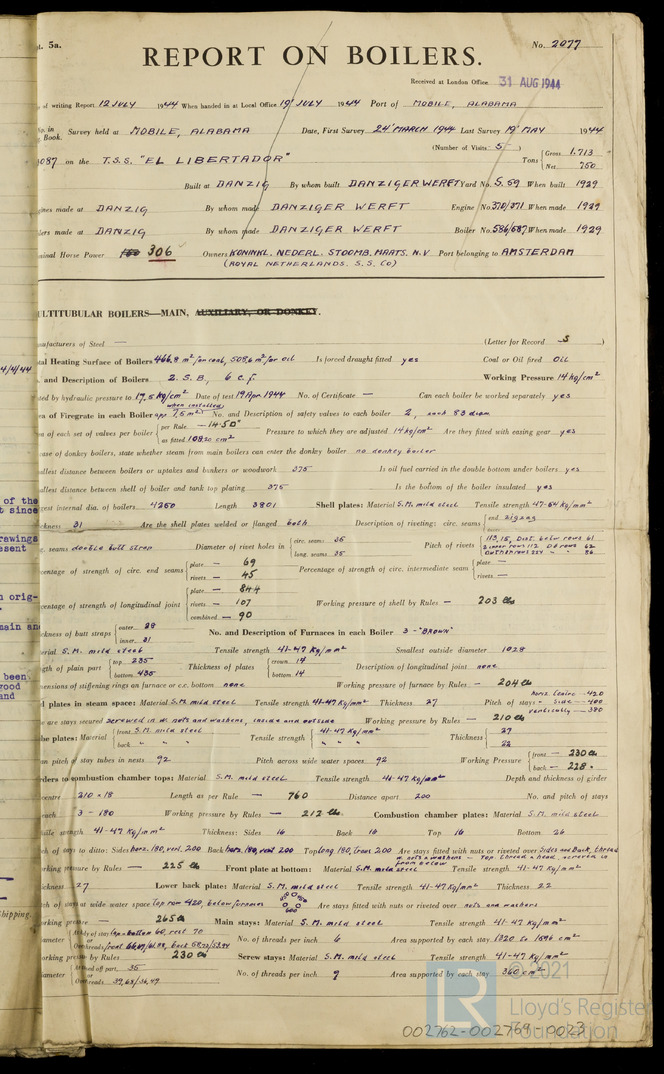 t. 5a.
REPORT ON BOILERS.
No. 2077
Received at London Office 31 AUG 1944
of writing Report 12 JULY 1944 When handed in at Local Office 19 JULY 1944 Port of MOBILE, ALABAMA
No. in Book. Survey held at MOBILE, ALABAMA Date, First Survey 24 MARCH 1944 Last Survey 19 MAY 1944
(Number of Visits 5 )
087 on the T.S.S. "EL LIBERTADOR" Tons { Gross 1.713 Net 750
Built at DANZIG By whom built DANZIGER WERFT Yard No. S.59 When built 1929
gines made at DANZIG By whom made DANZIGER WERFT Engine No. 370/371 When made 1929
lers made at DANZIG By whom made DANZIGER WERFT Boiler No. 586/587 When made 1929
minal Horse Power 306 Owners KONINKL. NEDERL. STOOMB. MAATS. N.V Port belonging to AMSTERDAM
(ROYAL NETHERLANDS. S.S. Co)
ULTITUBULAR BOILERS—MAIN, AUXILIARY, OR DONKEY.
nufacturers of Steel — (Letter for Record S )
tal Heating Surface of Boilers 466,8 m² for coal, 508,6 m² for oil Is forced draught fitted yes Coal or Oil fired OIL
. and Description of Boilers 2. S.B, 6 c.f. Working Pressure 14 kg/cm²
ted by hydraulic pressure to 17,5 kg/cm² Date of test 19 Apr. 1944 No. of Certificate — Can each boiler be worked separately yes
when installed
ea of Firegrate in each Boiler app 7,5 m² No. and Description of safety valves to each boiler 2, each 83 diam
ea of each set of valves per boiler { per Rule — 14.50" as fitted 108.20 cm² Pressure to which they are adjusted 14 kg/cm² Are they fitted with easing gear yes
case of donkey boilers, state whether steam from main boilers can enter the donkey boiler no donkey boiler
allest distance between boilers or uptakes and bunkers or woodwork 375 Is oil fuel carried in the double bottom under boilers yes
allest distance between shell of boiler and tank top plating 375 Is the bottom of the boiler insulated yes
gest internal dia. of boilers 4250 Length 3801 Shell plates: Material S.M. mild steel Tensile strength 47-54 kg/mm²
ickness 31 Are the shell plates welded or flanged both Description of riveting: circ. seams { end zigzag inter.
. seams double butt strap Diameter of rivet holes in { circ. seams 35 long. seams 35 Pitch of rivets
rcentage of strength of circ. end seams { plate — 69 rivets — 45 Percentage of strength of circ. intermediate seam { plate — rivets —
rcentage of strength of longitudinal joint { plate — 84.4 rivets — 107 combined — 90 Working pressure of shell by Rules — 203 lbs
ickness of butt straps { outer 28 inner 31 No. and Description of Furnaces in each Boiler 3 - "BROWN"
erial S.M. mild steel Tensile strength 41-47 kg/mm² Smallest outside diameter 1028
ngth of plain part { top 235 bottom 435 Thickness of plates { crown 14 bottom 14 Description of longitudinal joint none
mensions of stiffening rings on furnace or c.c. bottom none Working pressure of furnace by Rules — 204 lbs
d plates in steam space: Material S.M. mild steel Tensile strength 41-47 kg/mm² Thickness 27 Pitch of stays
horiz. Centre - 420
" Side - 400
vertically - 390
w are stays secured screwed in w. nuts and washers, inside and outside Working pressure by Rules — 210 lbs
be plates: Material { front S.M. mild steel back " " " Tensile strength { 41-47 kg/mm² " " " Thickness { 27 22
an pitch of stay tubes in nests 92 Pitch across wide water spaces 92 Working Pressure { front — 230 lbs back — 228 "
rders to combustion chamber tops: Material S.M. mild steel Tensile strength 41-47 kg/mm² Depth and thickness of girder
centre 210 × 18 Length as per Rule — 760 Distance apart 200 No. and pitch of stays
each 3 - 180 Working pressure by Rules — 212 lbs Combustion chamber plates: Material S.M. mild steel
sile strength 41-47 kg/mm² Thickness: Sides 16 Back 16 Top 16 Bottom 26
ch of stays to ditto: Sides horz. 180, vert. 200 Back horz. 180, vert 200 Top long 180, trans 200 Are stays fitted with nuts or riveted over Sides and Back, thread
w. nuts & washers — Top, thread & head, screwed in from below
rking pressure by Rules — 225 lbs Front plate at bottom: Material S.M. mild steel Tensile strength 41-47 kg/mm²
ickness 27 Lower back plate: Material S.M. mild steel Tensile strength 41-47 kg/mm² Thickness 22
ch of stays at wide water space Top row 420, below furnaces 600 Are stays fitted with nuts or riveted over nuts and washers
rking pressure — 265 lbs Main stays: Material S.M. mild steel Tensile strength 41-47 kg/mm²
ameter { At body of stay top + bottom 60, rest 70 or Over threads No. of threads per inch 6 Area supported by each stay 1820 to 1596 cm²
orking pressure by Rules 230 lbs Screw stays: Material S.M. mild steel Tensile strength 41-47 kg/mm²
iameter { At turned off part, 35 or Over threads 39,63/36,49 No. of threads per inch 9 Area supported by each stay 360 cm²
4/4/44
of the
t since
rawings
esent
n orig-
ain and
been
wood
and
Shipping.
© 2021
LR Lloyd's Register
Foundation
002762-002769-0023